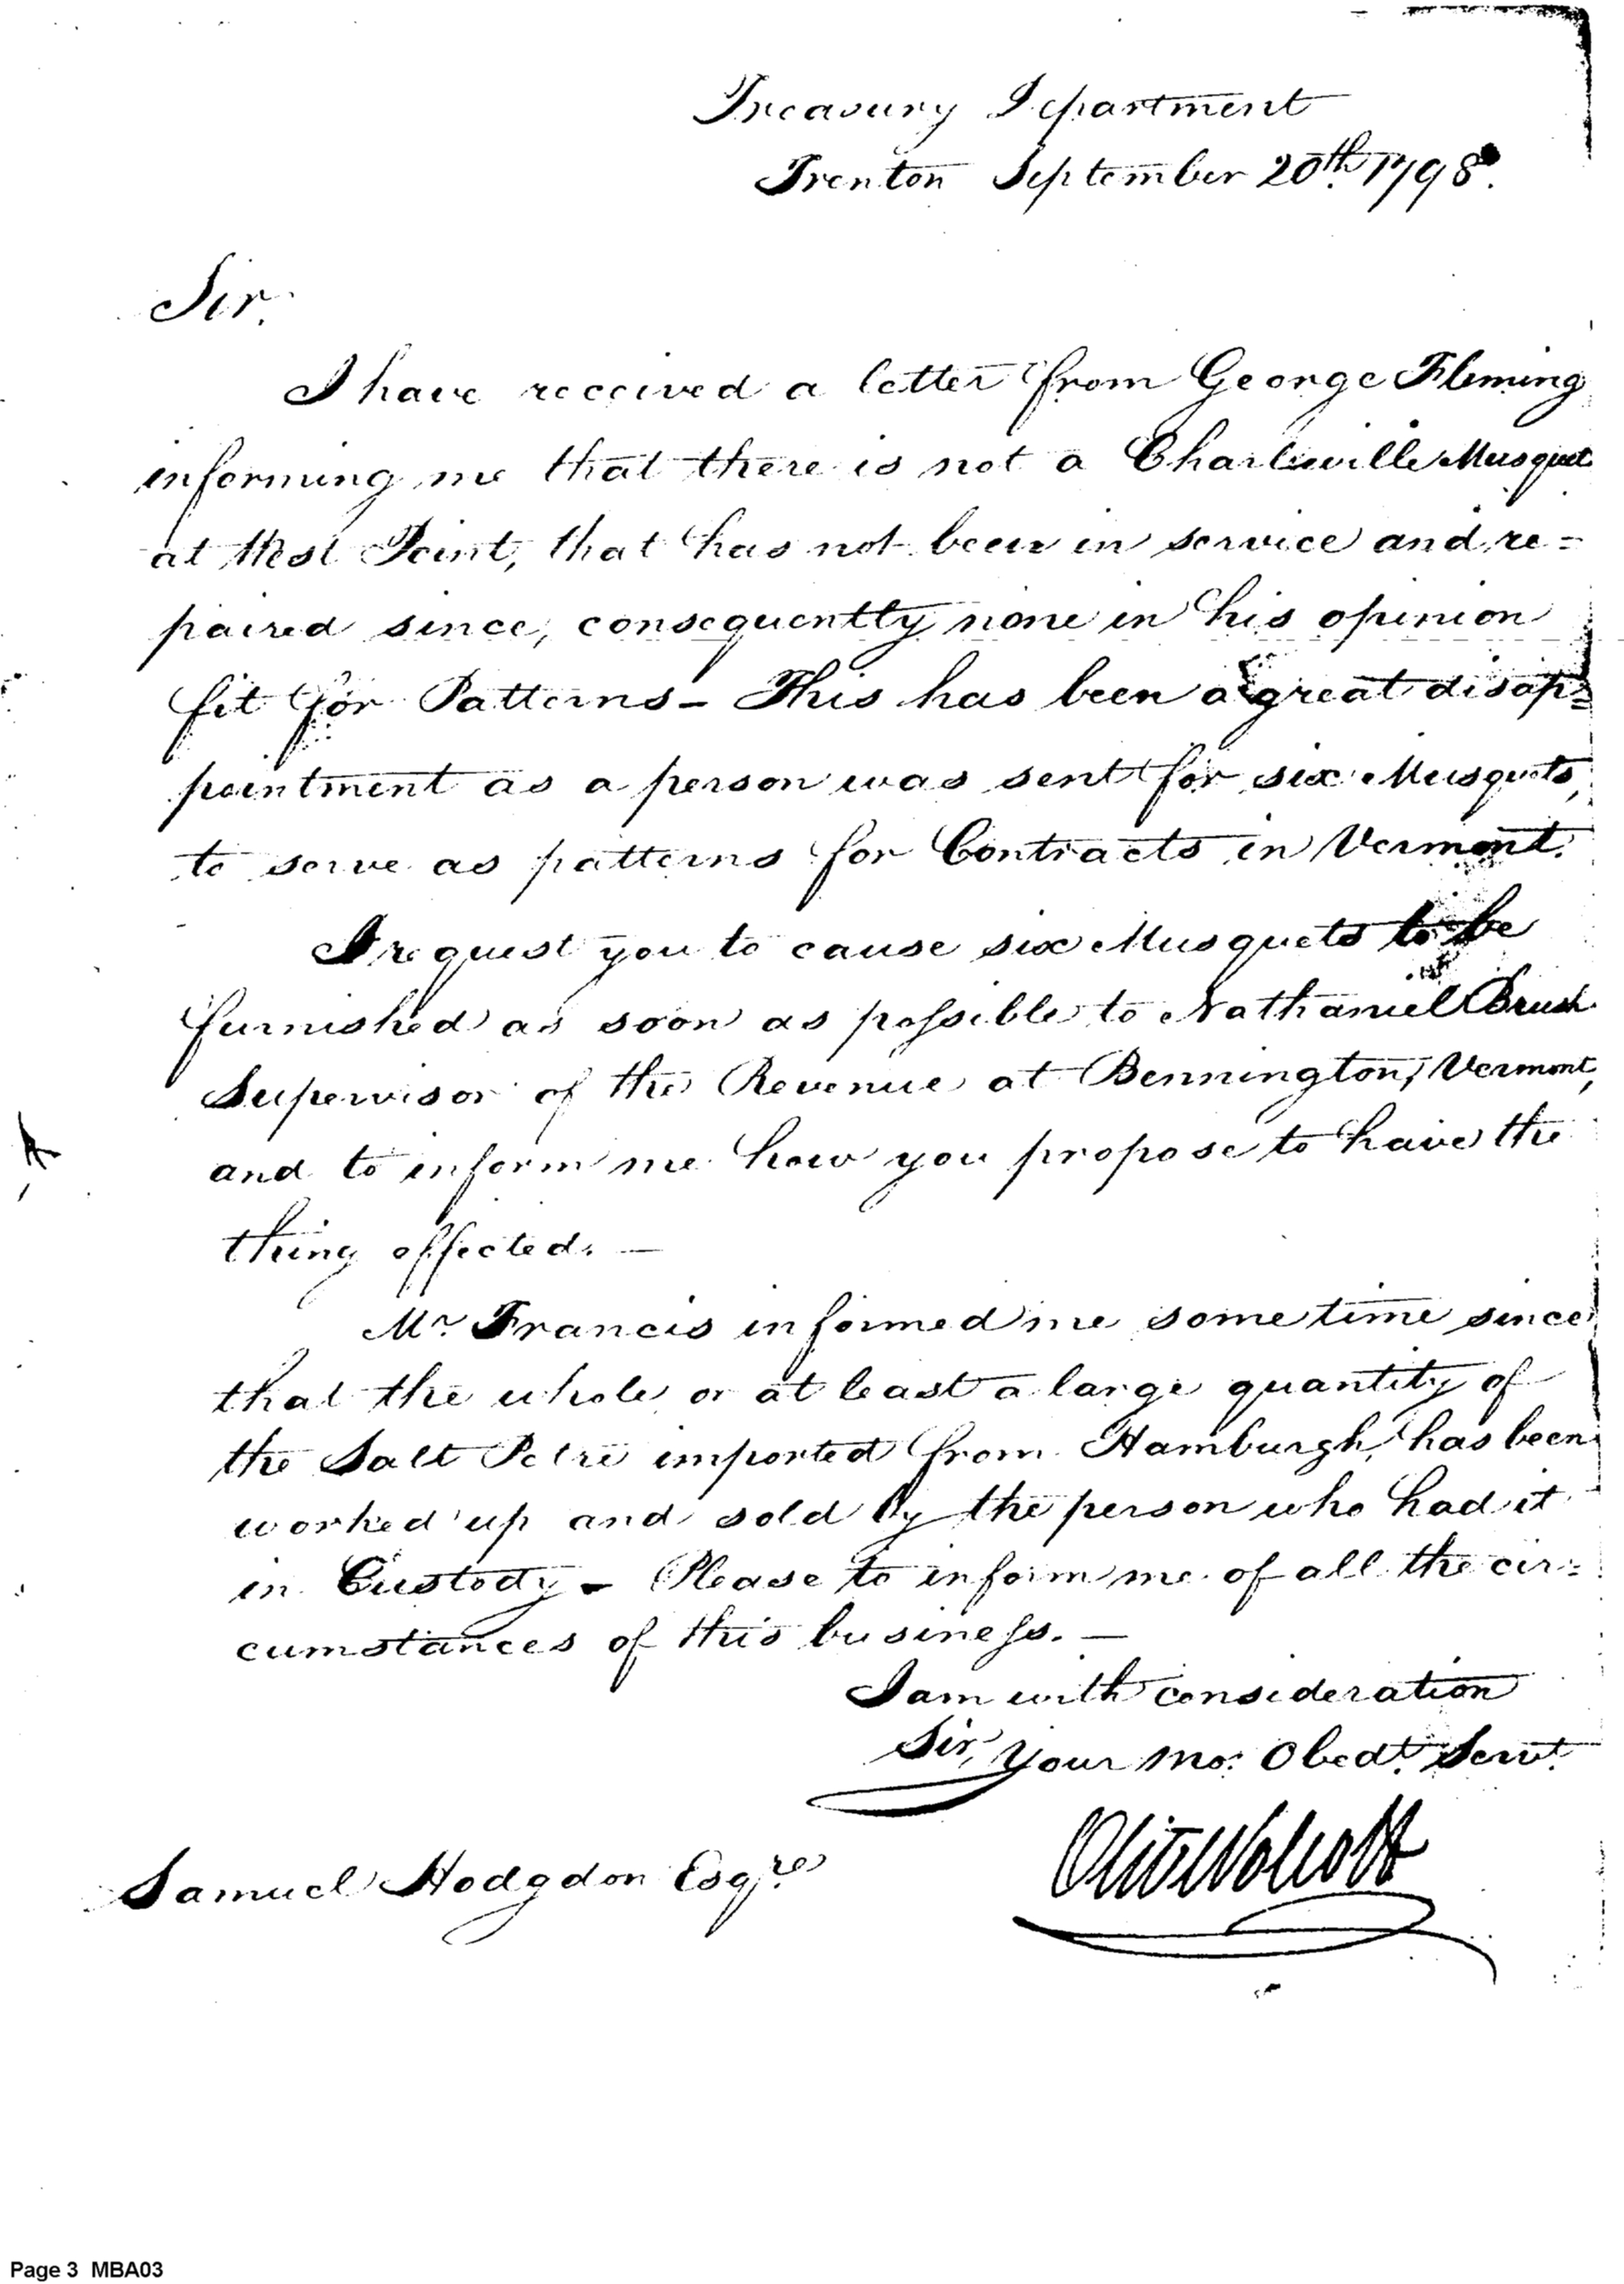 Treasury Department
Trenton September 20th. 1798.
Sir.
I have received a letter from George Fleming
informing me that there is not a Charleville Musquet
at West Point, that has not been in service and re=
paired since, consequently none in his opinion
fit for Patterns - This has been a great disap=
pointment as a person was sent for six Musquets,
to serve as patterns for Contracts in Vermont.
I request you to cause six Musquets to be
furnished as soon as possible to Nathaniel Brush
Supervisor of the Revenue at Bennington, Vermont,
and to inform me how you propose to have the
thing effected. —
Mr. Francis informed me some time since
that the whole or at least a large quantity of
the Salt Petre imported from Hamburgh, has been
worked up and sold by the person who had it
in Custody - Please to inform me of all the cir=
cumstances of this business. —
I am with consideration
Sir, your mo: Obedt. Servt.
Oliv Wolcott
Samuel Hodgdon Esqre.
Page 3 MBA03